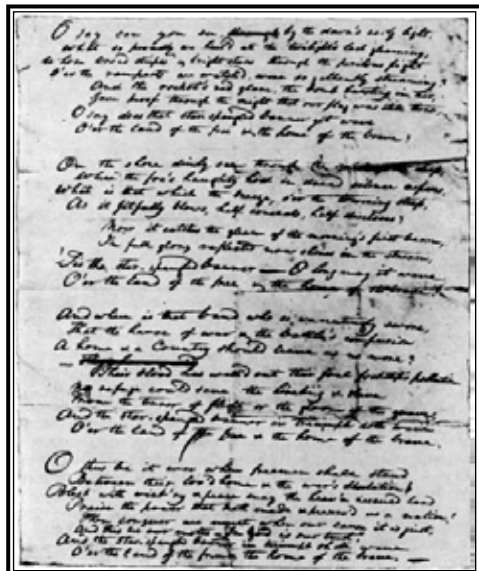 O say can you see by the dawn's early light,
What so proudly we hail'd at the twilight's last gleaming,
Whose broad stripes & bright stars through the perilous fight
O'er the ramparts we watch'd, were so gallantly streaming?
And the rocket's red glare, the bomb bursting in air,
Gave proof through the night that our flag was still there
O say does that star-spangled banner yet wave
O'er the land of the free & the home of the brave?
On the shore dimly seen through the deep,
Where the foe's haughty host in dread silence reposes,
What is that which the breeze, o'er the towering steep,
As it fitfully blows, half conceals, half discloses?
Now it catches the gleam of the morning's first beam,
In full glory reflected now shines in the stream,
'Tis the star-spangled banner — O long may it wave
O'er the land of the free & the home of the brave!
And where is that band who so vauntingly swore,
That the havoc of war & the battle's confusion
A home & a Country should leave us no more?
Their blood has wash'd out their foul footstep's pollution
No refuge could save the hireling & slave
From the terror of flight or the gloom of the grave,
And the star-spangled banner in triumph doth wave
O'er the land of the free & the home of the brave.
O thus be it ever when freemen shall stand
Between their lov'd home & the war's desolation!
Blest with vict'ry & peace may the heav'n rescued land
Praise the power that hath made & preserv'd us a nation!
Then conquer we must, when our cause it is just,
And this be our motto — In God is our trust,
And the star-spangled banner in triumph shall wave
O'er the land of the free & the home of the brave. —